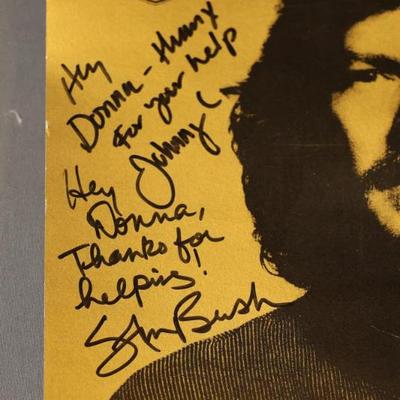 Hey
Donna - Thanx
For your help
Johnny C
Hey
Donna,
Thanks for
helping!
Stan Bush